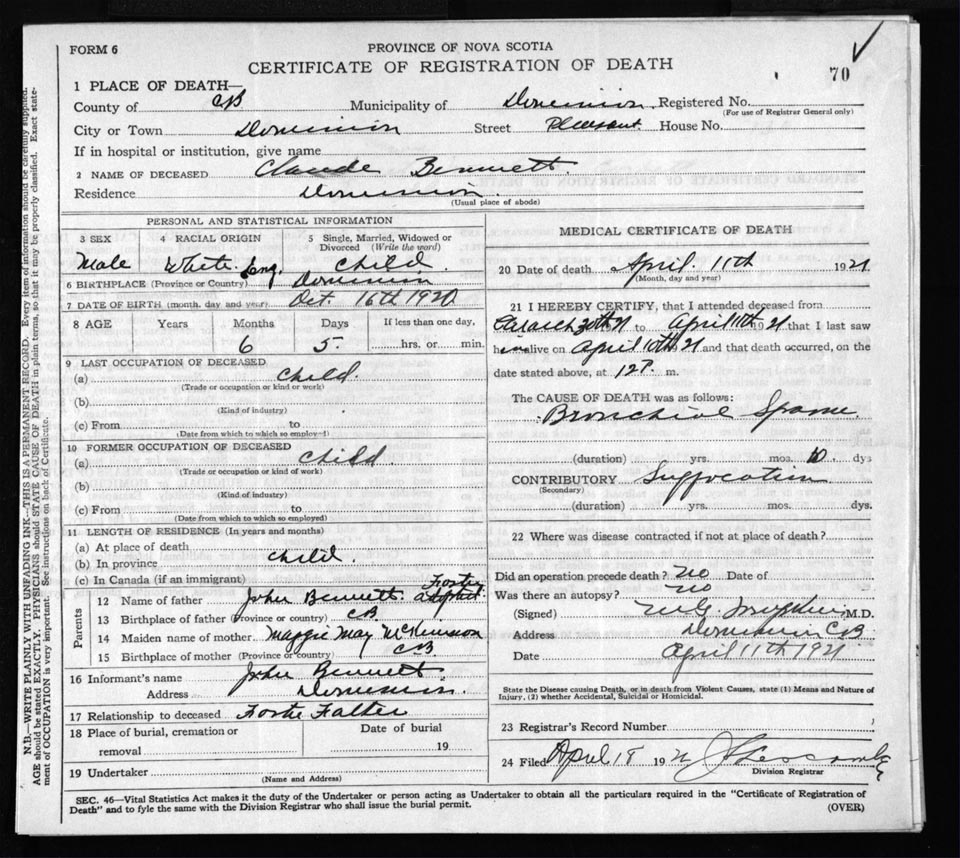 FORM 6
PROVINCE OF NOVA SCOTIA
CERTIFICATE OF REGISTRATION OF DEATH
70
1 PLACE OF DEATH—
County of CB Municipality of Dominion Registered No.
(For use of Registrar General only)
City or Town Dominion Street Pleasant House No.
If in hospital or institution, give name
2 NAME OF DECEASED Claude Bennett.
Residence Dominion.
(Usual place of abode)
PERSONAL AND STATISTICAL INFORMATION
3 SEX 4 RACIAL ORIGIN 5 Single, Married, Widowed or Divorced (Write the word)
Male White Child
6 BIRTHPLACE (Province or Country) Dominion
7 DATE OF BIRTH (month, day and year) Oct. 16th 1920
8 AGE Years Months Days If less than one day,
6 5 hrs. or min.
9 LAST OCCUPATION OF DECEASED
(a) Child.
(Trade or occupation or kind or work)
(b)
(Kind of industry)
(c) From to
(Date from which to which so employed)
10 FORMER OCCUPATION OF DECEASED
(a) Child
(Trade or occupation of kind of work)
(b)
(Kind of industry)
(c) From to
(Date from which to which so employed)
11 LENGTH OF RESIDENCE (In years and months)
(a) At place of death
(b) In province Child.
(c) In Canada (if an immigrant)
Parents
12 Name of father John Bennett. Foster
13 Birthplace of father (Province or country) CB
14 Maiden name of mother Maggie May McKinnon
15 Birthplace of mother (Province or country) CB.
16 Informant's name John Bennett
Address Dominion.
17 Relationship to deceased Foster Father
18 Place of burial, cremation or removal
Date of burial
19
19 Undertaker
(Name and Address)
MEDICAL CERTIFICATE OF DEATH
20 Date of death April 11th 1921
(Month, day and year)
21 I HEREBY CERTIFY, that I attended deceased from
March 30th 21 to April 11th 1921 that I last saw
him alive on April 10th 21 and that death occurred, on the
date stated above, at 12 P. m.
The CAUSE OF DEATH was as follows:
Bronchial Spasm
(duration) yrs. mos. 10 dys
CONTRIBUTORY Suffocation
(Secondary)
(duration) yrs. mos. dys.
22 Where was disease contracted if not at place of death?
Did an operation precede death? No Date of
Was there an autopsy? No
(Signed) M.D.
Address Dominion CB
Date April 11th 1921
State the Disease causing Death, or in death from Violent Causes, state (1) Means and Nature of
Injury, (2) whether Accidental, Suicidal or Homicidal.
23 Registrar's Record Number
24 Filed April 18 192
Division Registrar
SEC. 46—Vital Statistics Act makes it the duty of the Undertaker or person acting as Undertaker to obtain all the particulars required in the "Certificate of Registration of
Death" and to fyle the same with the Division Registrar who shall issue the burial permit.
(OVER)
N.D.—WRITE PLAINLY WITH UNFADING INK—THIS IS A PERMANENT RECORD. Every item of information should be carefully supplied.
AGE should be stated EXACTLY. PHYSICIANS should STATE CAUSE OF DEATH in plain terms, so that it may be properly classified. Exact state-
ment of OCCUPATION is very important. See instructions on back of Certificate.